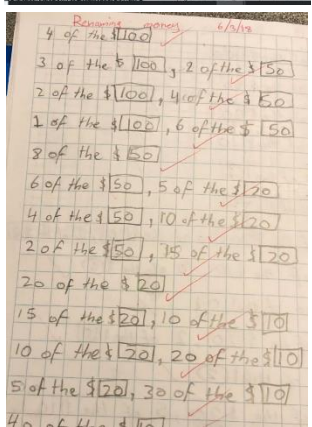 Renaming money 6/3/18
4 of the $100
3 of the $100, 2 of the $50
2 of the $100, 4 of the $50
1 of the $100, 6 of the $50
8 of the $50
6 of the $50, 5 of the $20
4 of the $50, 10 of the $20
2 of the $50, 15 of the $20
20 of the $20
15 of the $20, 10 of the $10
10 of the $20, 20 of the $10
5 of the $20, 30 of the $10
40 of the $10